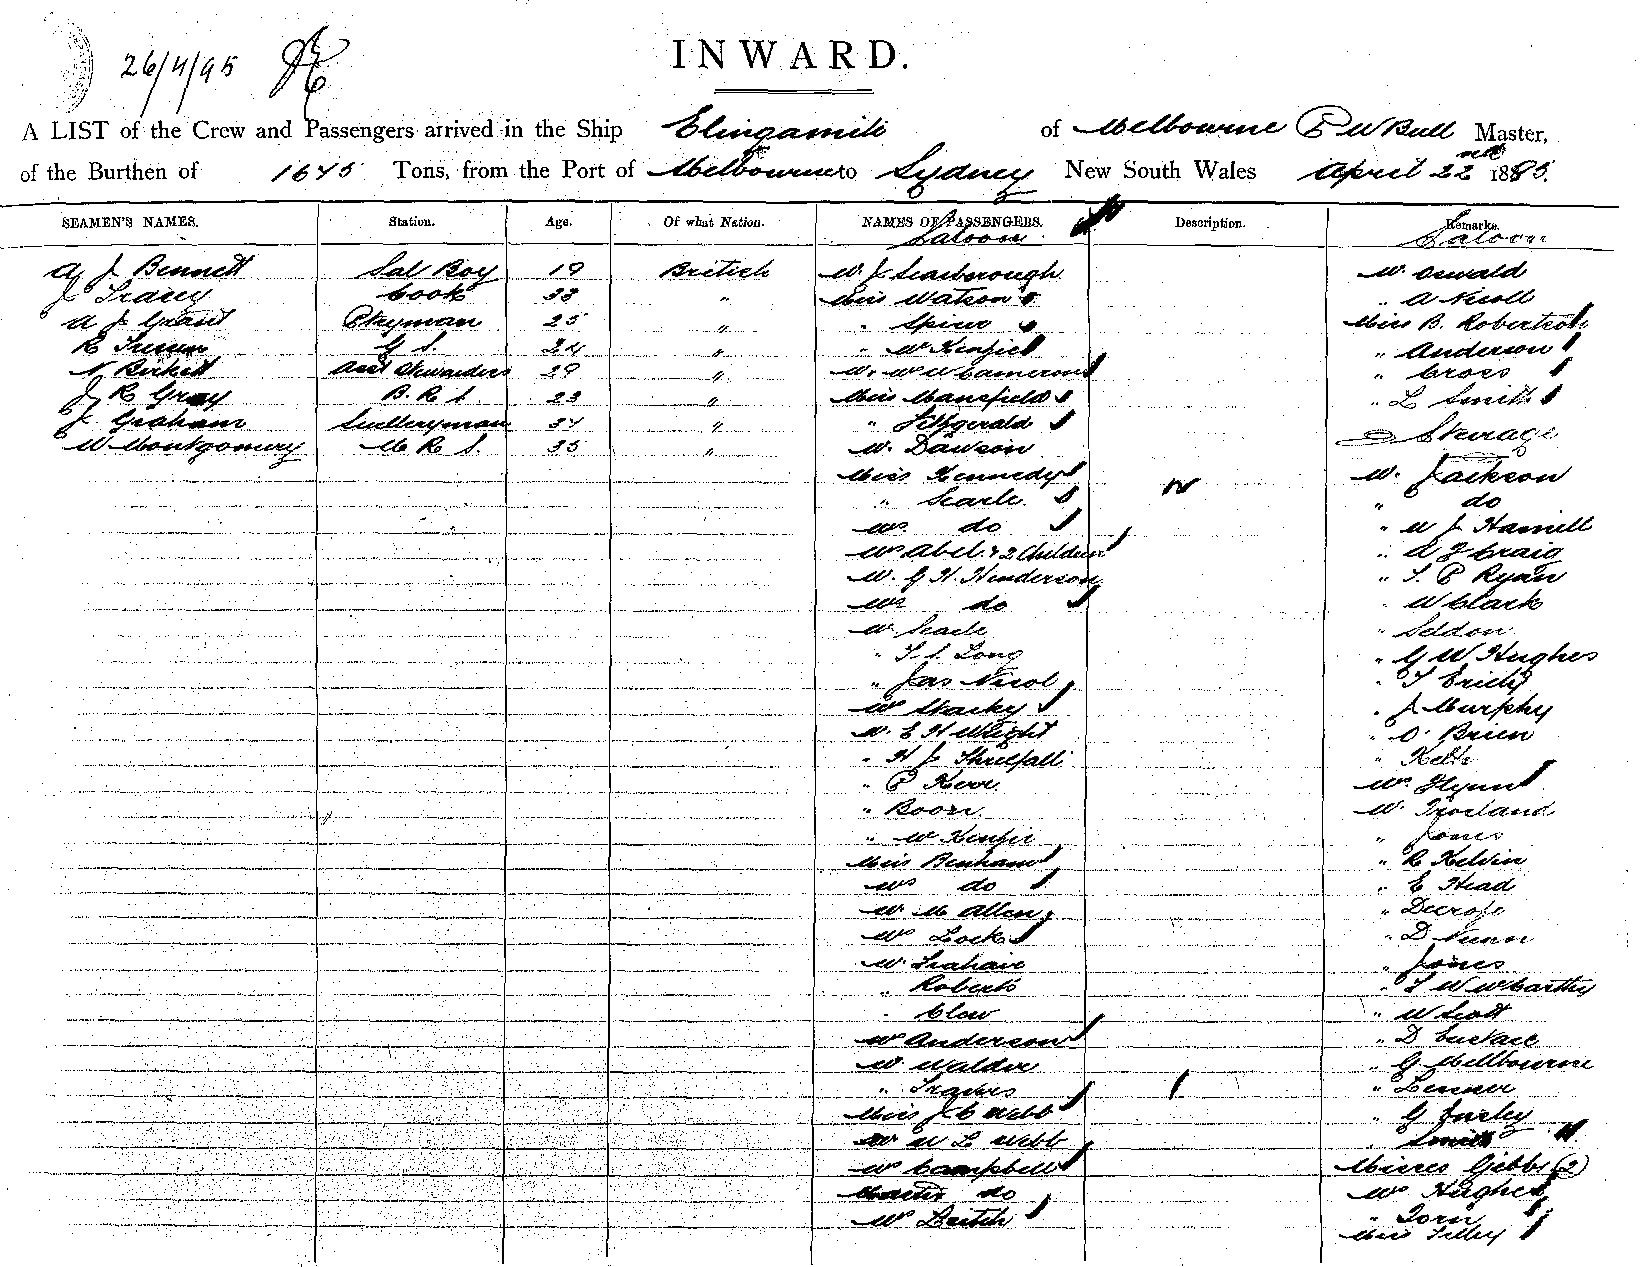 26/4/95
INWARD.
A LIST of the Crew and Passengers arrived in the Ship Elingamite of Melbourne P W Bull Master,
of the Burthen of 1675 Tons, from the Port of Melbourne to Sydney New South Wales April 22nd 1895.
SEAMEN'S NAMES. Station. Age. Of what Nation. NAMES OF PASSENGERS. Description. Remarks.
Saloon Saloon
A J Bennett Sal Boy 19 British Mr J Scarborough Mr Oswald
J Tracey Cook 33 " Miss Watson " A Nicoll
A J Grant Ptryman 25 " " Spiro Miss B. Robertson
R G.S. 24 " " McKenzie " Anderson
N Birkett Asst Stwardess 29 " Mr W Cameron " Cross
J R Gray B.R.S. 23 " Miss Mansfield " L Smith
J Graham Sculleryman 34 " " Fitzgerald Steerage
W Montgomery M R S. 35 " Mr. Dawson
Miss Kennedy Mr. Jackson
" Searle " do
Mrs do " W J Hamill
Mrs Abel & 2 Children " A J Craig
Mr. G H. Henderson " T. P Ryan
Mrs do " W Clark
Mr Searle " Seddon
" T. S. Long " G W Hughes
" Jas Nicol " T
Mrs Starky " J Murphy
Mr. E H Wright " O'Brien
" H J Threlfall " Kelty
" P Kerr Mrs Flynn
" Boon Mr
" McKenzie " Jones
Miss Benham " R Kelvin
Mrs do " E Head
Mr M Allen "
Mrs Lock " D Nunn
Mr. Trahair " Jones
" Roberts " T W McCarthy
" Clow " W Scott
Mrs Anderson " D Eustace
Mr Walder " G Mellbourne
" Travers "
Miss J C Webb " G Furley
Mr W L Webb Smith
Mrs Campbell Misses Gibbs (2)
Master do Mrs Hughes
Mrs Leitch " Torn
Miss Tilley